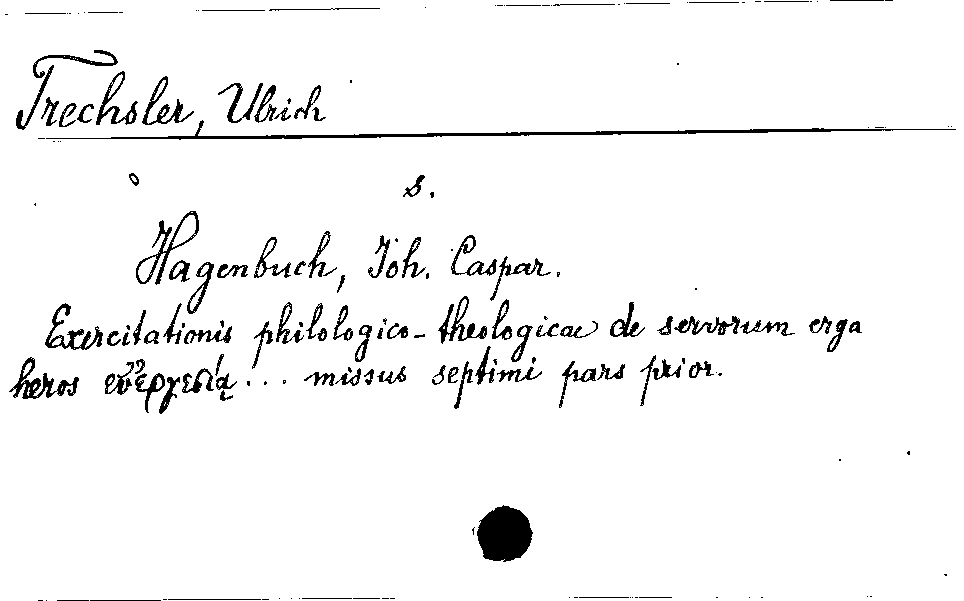 Trechsler, Ulrich
s.
Hagenbuch, Joh. Caspar.
Exercitationis philologico-theologicae de servorum erga
heros εὐεργεσίᾳ ... missus septimi pars prior.